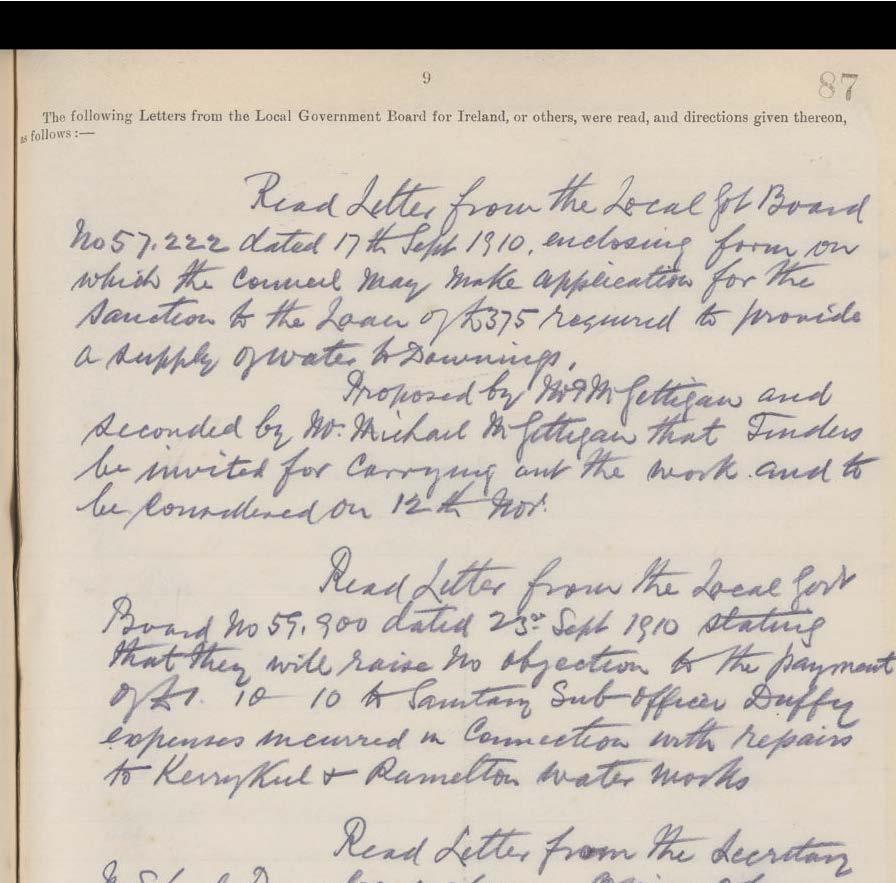 9
87
The following Letters from the Local Government Board for Ireland, or others, were read, and directions given thereon,
as follows :—
Read Letter from the Local Got Board
No 57.222 dated 17th Sept 1910. enclosing form on
which the Council may make application for the
sanction to the Loan of £375 required to provide
a supply of water to Downings.
Proposed by McGettigan and
seconded by Mr. Michael McGettigan that Tenders
be invited for carrying out the work and to
be considered on 12th Nov.
Read Letter from the Local Govt
Board No 59.900 dated 23rd Sept 1910 stating
that they will raise no objection to the payment
of £1. 10 10 to Sanitary Sub-Officer Duffy
expenses incurred in connection with repairs
to Kerrykeel & Ramelton water works
Read Letter from the Secretary